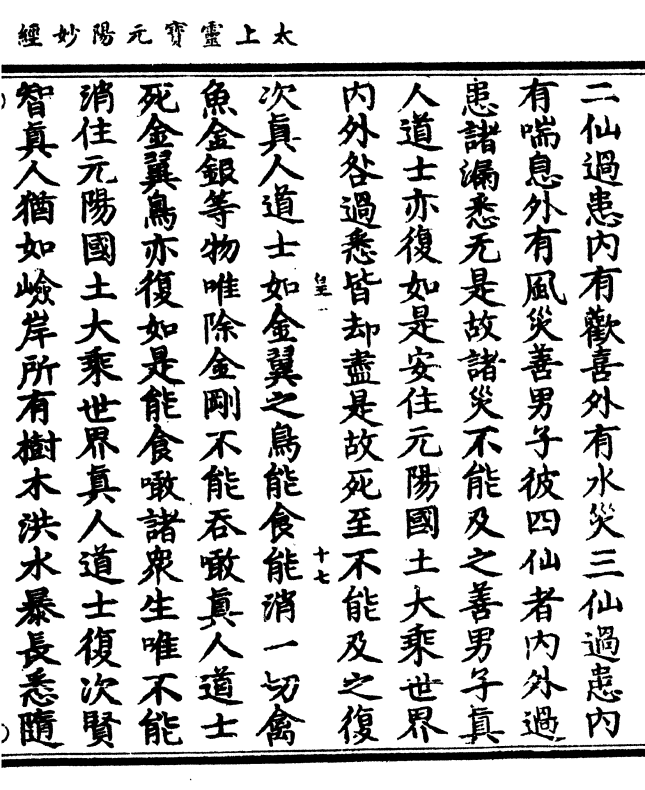 太上靈寶元陽妙經
二仙過患內有歡喜外有水災三仙過患內
有喘息外有風災善男子彼四仙者內外過
患諸漏悉无是故諸災不能及之善男子真
人道士亦復如是安住元陽國土大乘世界
內外咎過悉皆却盡是故死至不能及之復
十七
次真人道士如金翼之鳥能食能消一切禽
魚金銀等物唯除金剛不能吞噉真人道士
死金翼鳥亦復如是能食噉諸衆生唯不能
消住元陽國土大乘世界真人道士復次賢
智真人猶如嶮岸所有樹木洪水暴長悉隨